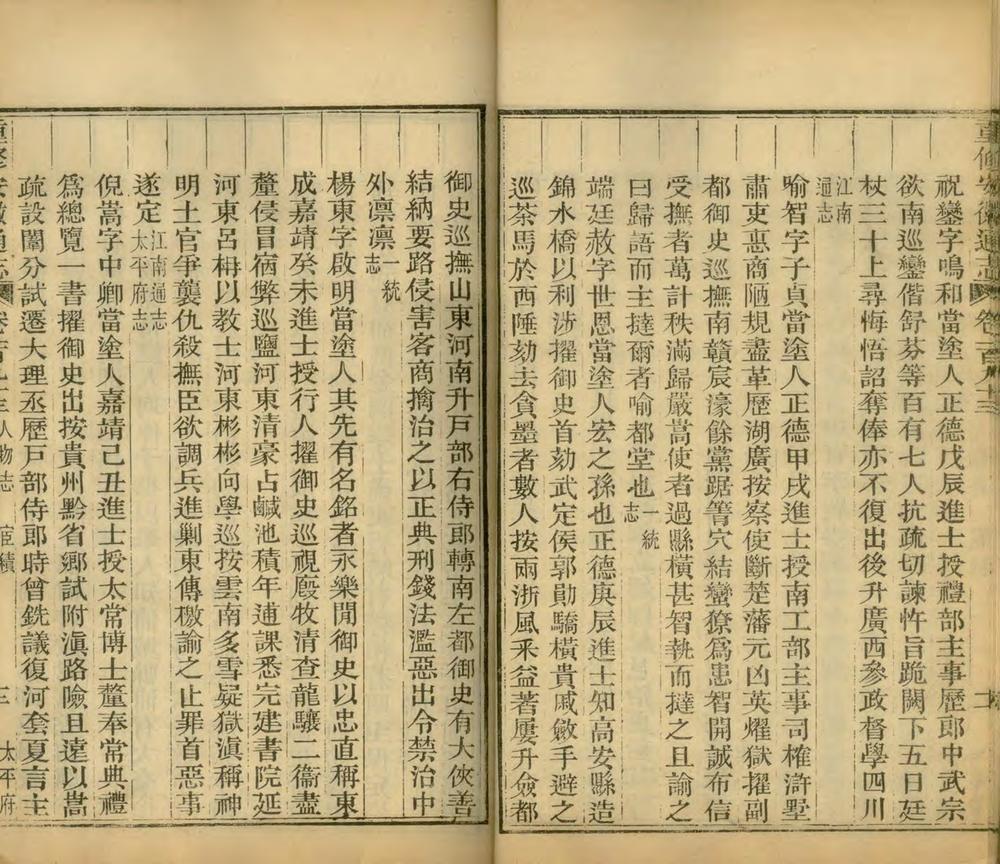 重修安徽通志 卷一百八十三
祝鑾字鳴和當塗人正德戊辰進士授禮部主事歷郎中武宗
欲南巡鑾偕舒芬等百有七人抗疏切諫忤旨跪闕下五日廷
杖三十上尋悔悟詔奪俸亦不復出後升廣西參政督學四川
江南
通志
喻智字子貞當塗人正德甲戌進士授南工部主事司榷滸墅
肅吏惠商陋規盡革歷湖廣按察使斷楚藩元凶英耀獄擢副
都御史巡撫南贛宸濠餘黨踞箐穴結蠻獠爲患智開誠布信
受撫者萬計秩滿歸嚴嵩使者過縣橫甚智執而撻之且諭之
曰歸語而主撻爾者喻都堂也一統
志
端廷赦字世恩當塗人宏之孫也正德庚辰進士知高安縣造
錦水橋以利涉擢御史首劾武定侯郭勛驕橫貴戚斂手避之
巡茶馬於西陲劾去貪墨者數人按兩浙風采益著屢升僉都
御史巡撫山東河南升戸部右侍郎轉南左都御史有大俠善
結納要路侵害客商擒治之以正典刑錢法濫惡出令禁治中
外凛凛一統
志
楊東字啟明當塗人其先有名銘者永樂閒御史以忠直稱東
成嘉靖癸未進士授行人擢御史巡視廏牧清查龍驤二衞盡
釐侵冒宿弊巡鹽河東清豪占鹹池積年逋課悉完建書院延
河東呂枏以教士河東彬彬向學巡按雲南多雪疑獄滇稱神
明土官爭襲仇殺撫臣欲調兵進剿東傳檄諭之止罪首惡事
遂定江南通志
太平府志
倪嵩字中卿當塗人嘉靖己丑進士授太常博士釐奉常典禮
爲總覽一書擢御史出按貴州黔省鄉試附滇路險且遠以嵩
疏設闈分試遷大理丞歷戸部侍郎時曾銑議復河套夏言主
人物志 宦績 三 太平府